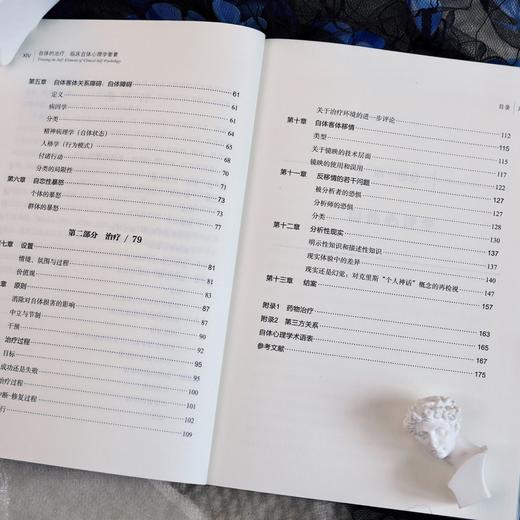 XIV 自体的治疗：临床自体心理学要素
Treating the Self: Elements of Clinical Self Psychology
第五章 自体客体关系障碍：自体障碍 61
定义 61
病因学 61
分类 64
精神病理学（自体状态） 65
人格学（行为模式） 68
付诸行动 70
分类的局限性 71
第六章 自恋性暴怒 73
个体的暴怒 73
群体的暴怒 77
第二部分 治疗 / 79
七章 设置 81
情境、氛围与过程 81
价值观 84
章 原则 87
消除对自体损害的影响 87
中立与节制 90
干预 92
治疗过程 95
目标 95
成功还是失败
治疗过程 100
中断-修复过程 102
行 109
目录
关于治疗环境的进一步评论 112
第十章 自体客体移情 115
类型 115
关于镜映的技术层面
镜映的使用和误用
第十一章 反移情的若干问题 127
被分析者的恐惧 127
分析师的恐惧 128
分类 131
第十二章 分析性现实 137
明示性知识和描述性知识 137
现实体验中的差异 140
现实还是幻觉：对克里斯“个人神话”概念的再检视 147
第十三章 结案 157
附录1 药物治疗 163
附录2 第三方关系 165
自体心理学术语表 167
参考文献 175